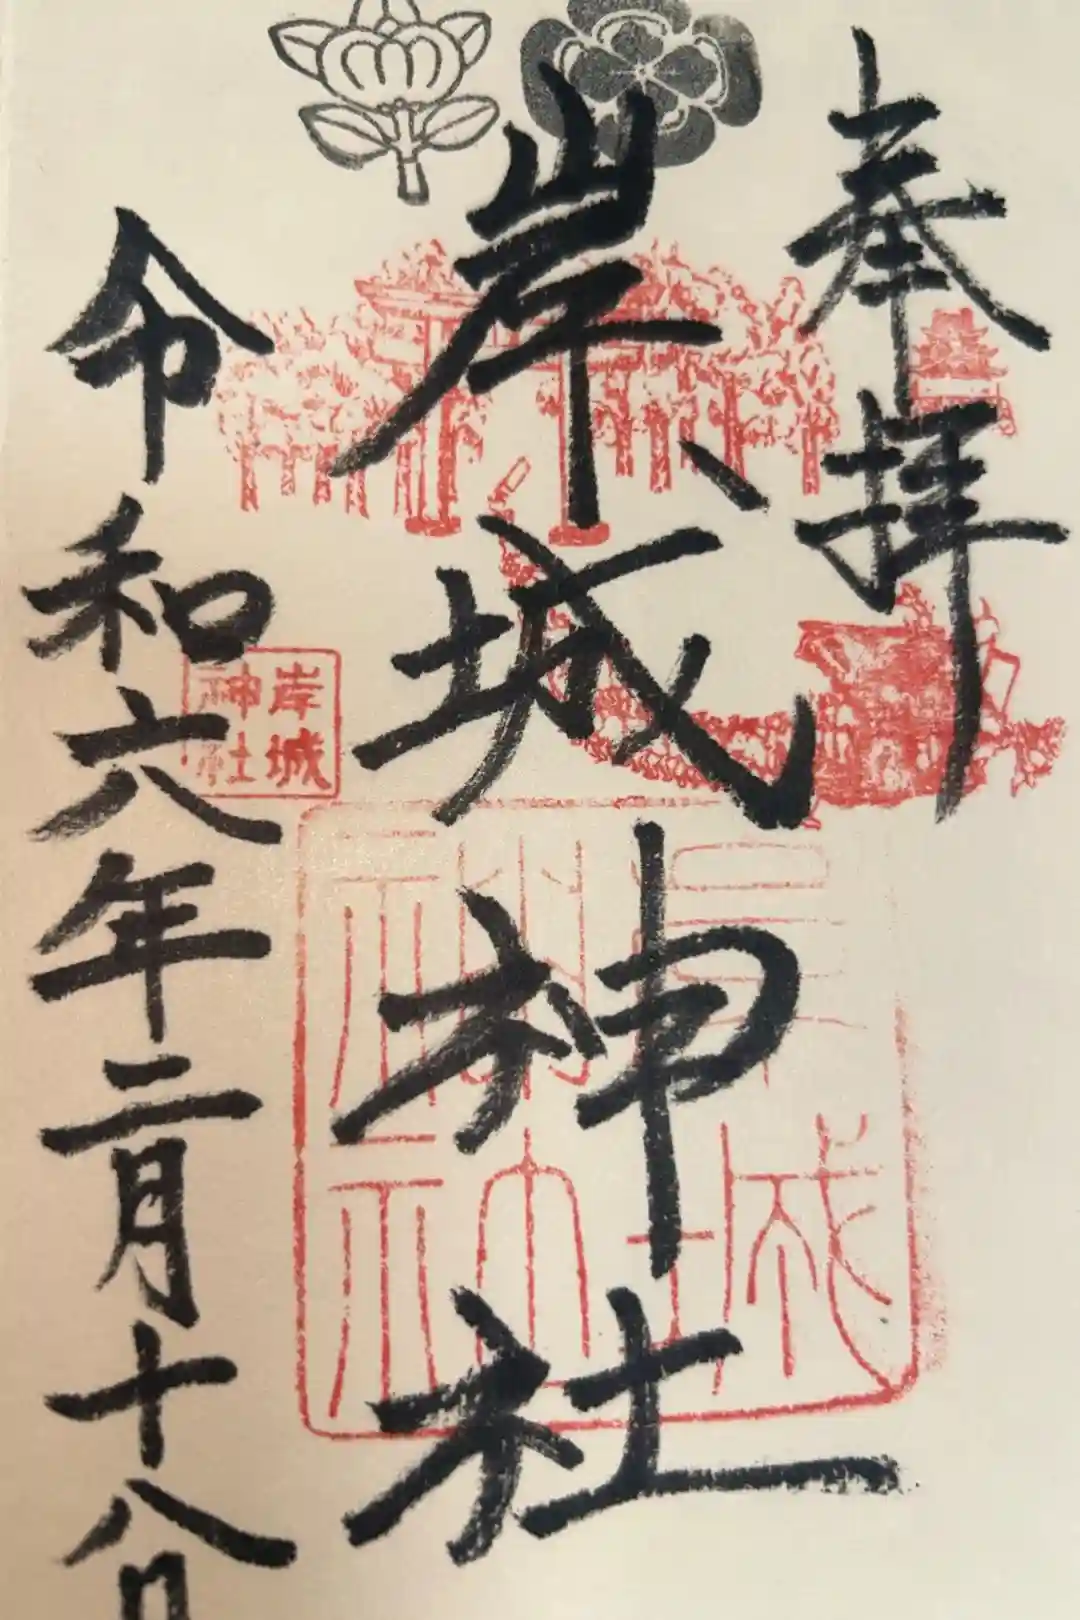 奉拝
岸城神社
令和六年二月十八日
岸城
神社
岸城
神社